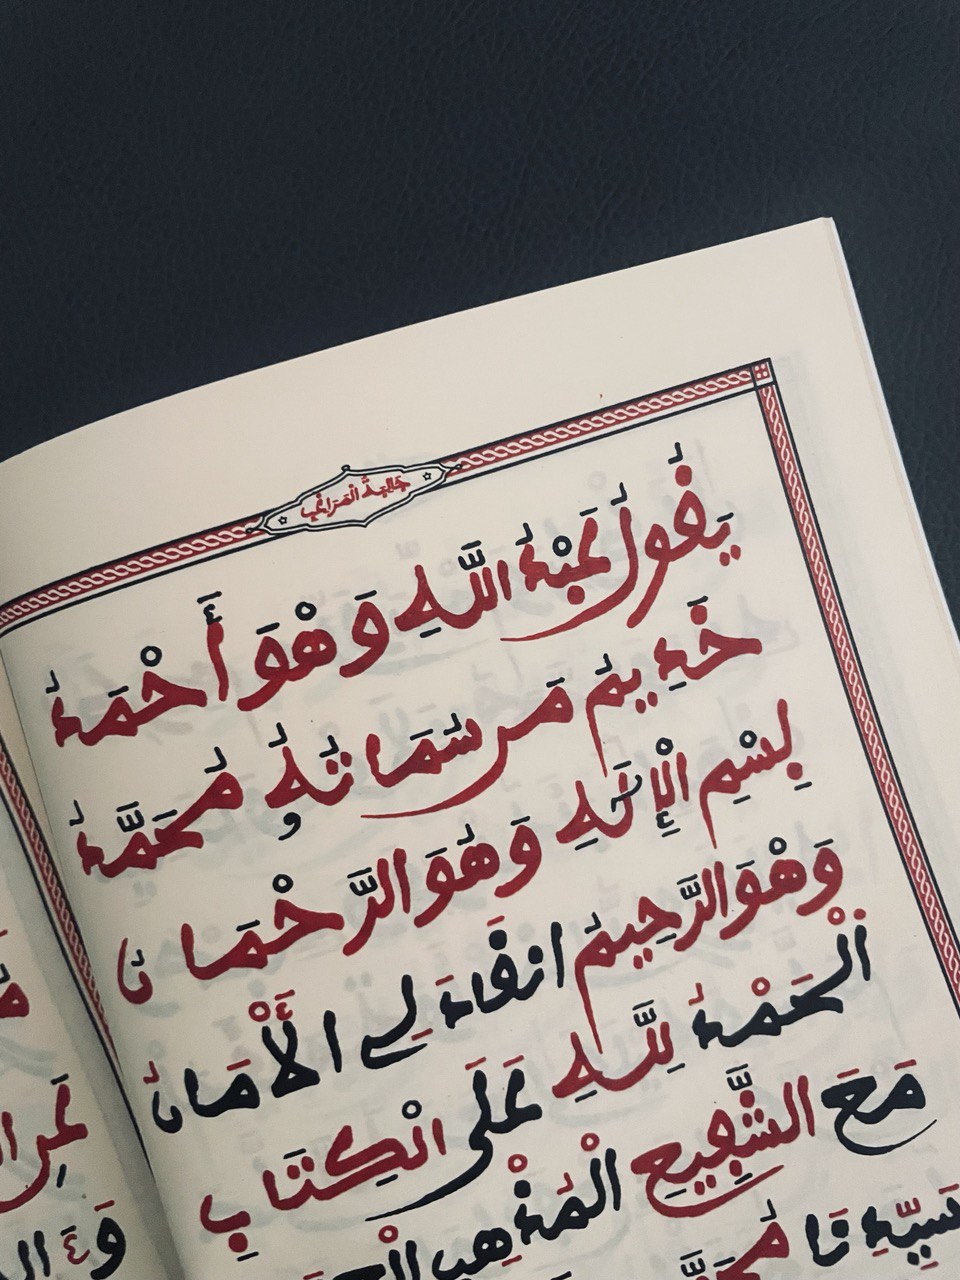 جالبة المراغب
يَقُولُ عَبْدُ اللَّهِ وَهْوَ أَحْمَدُ
خَدِيمُ مَن سُمَاتُهُ مُحَمَّدُ
بِسْمِ الإِلَهِ وَهُوَ الرَّحْمَانُ
وَهْوَ الرَّحِيمُ انقَادَ لِي الأَمَانُ
اَلْحَمْدُ لِلَّهِ عَلَى الْكِتَابِ
مَعَ الشَّفِيعِ الْمُذْهِبِ
سَيِّدِنَا